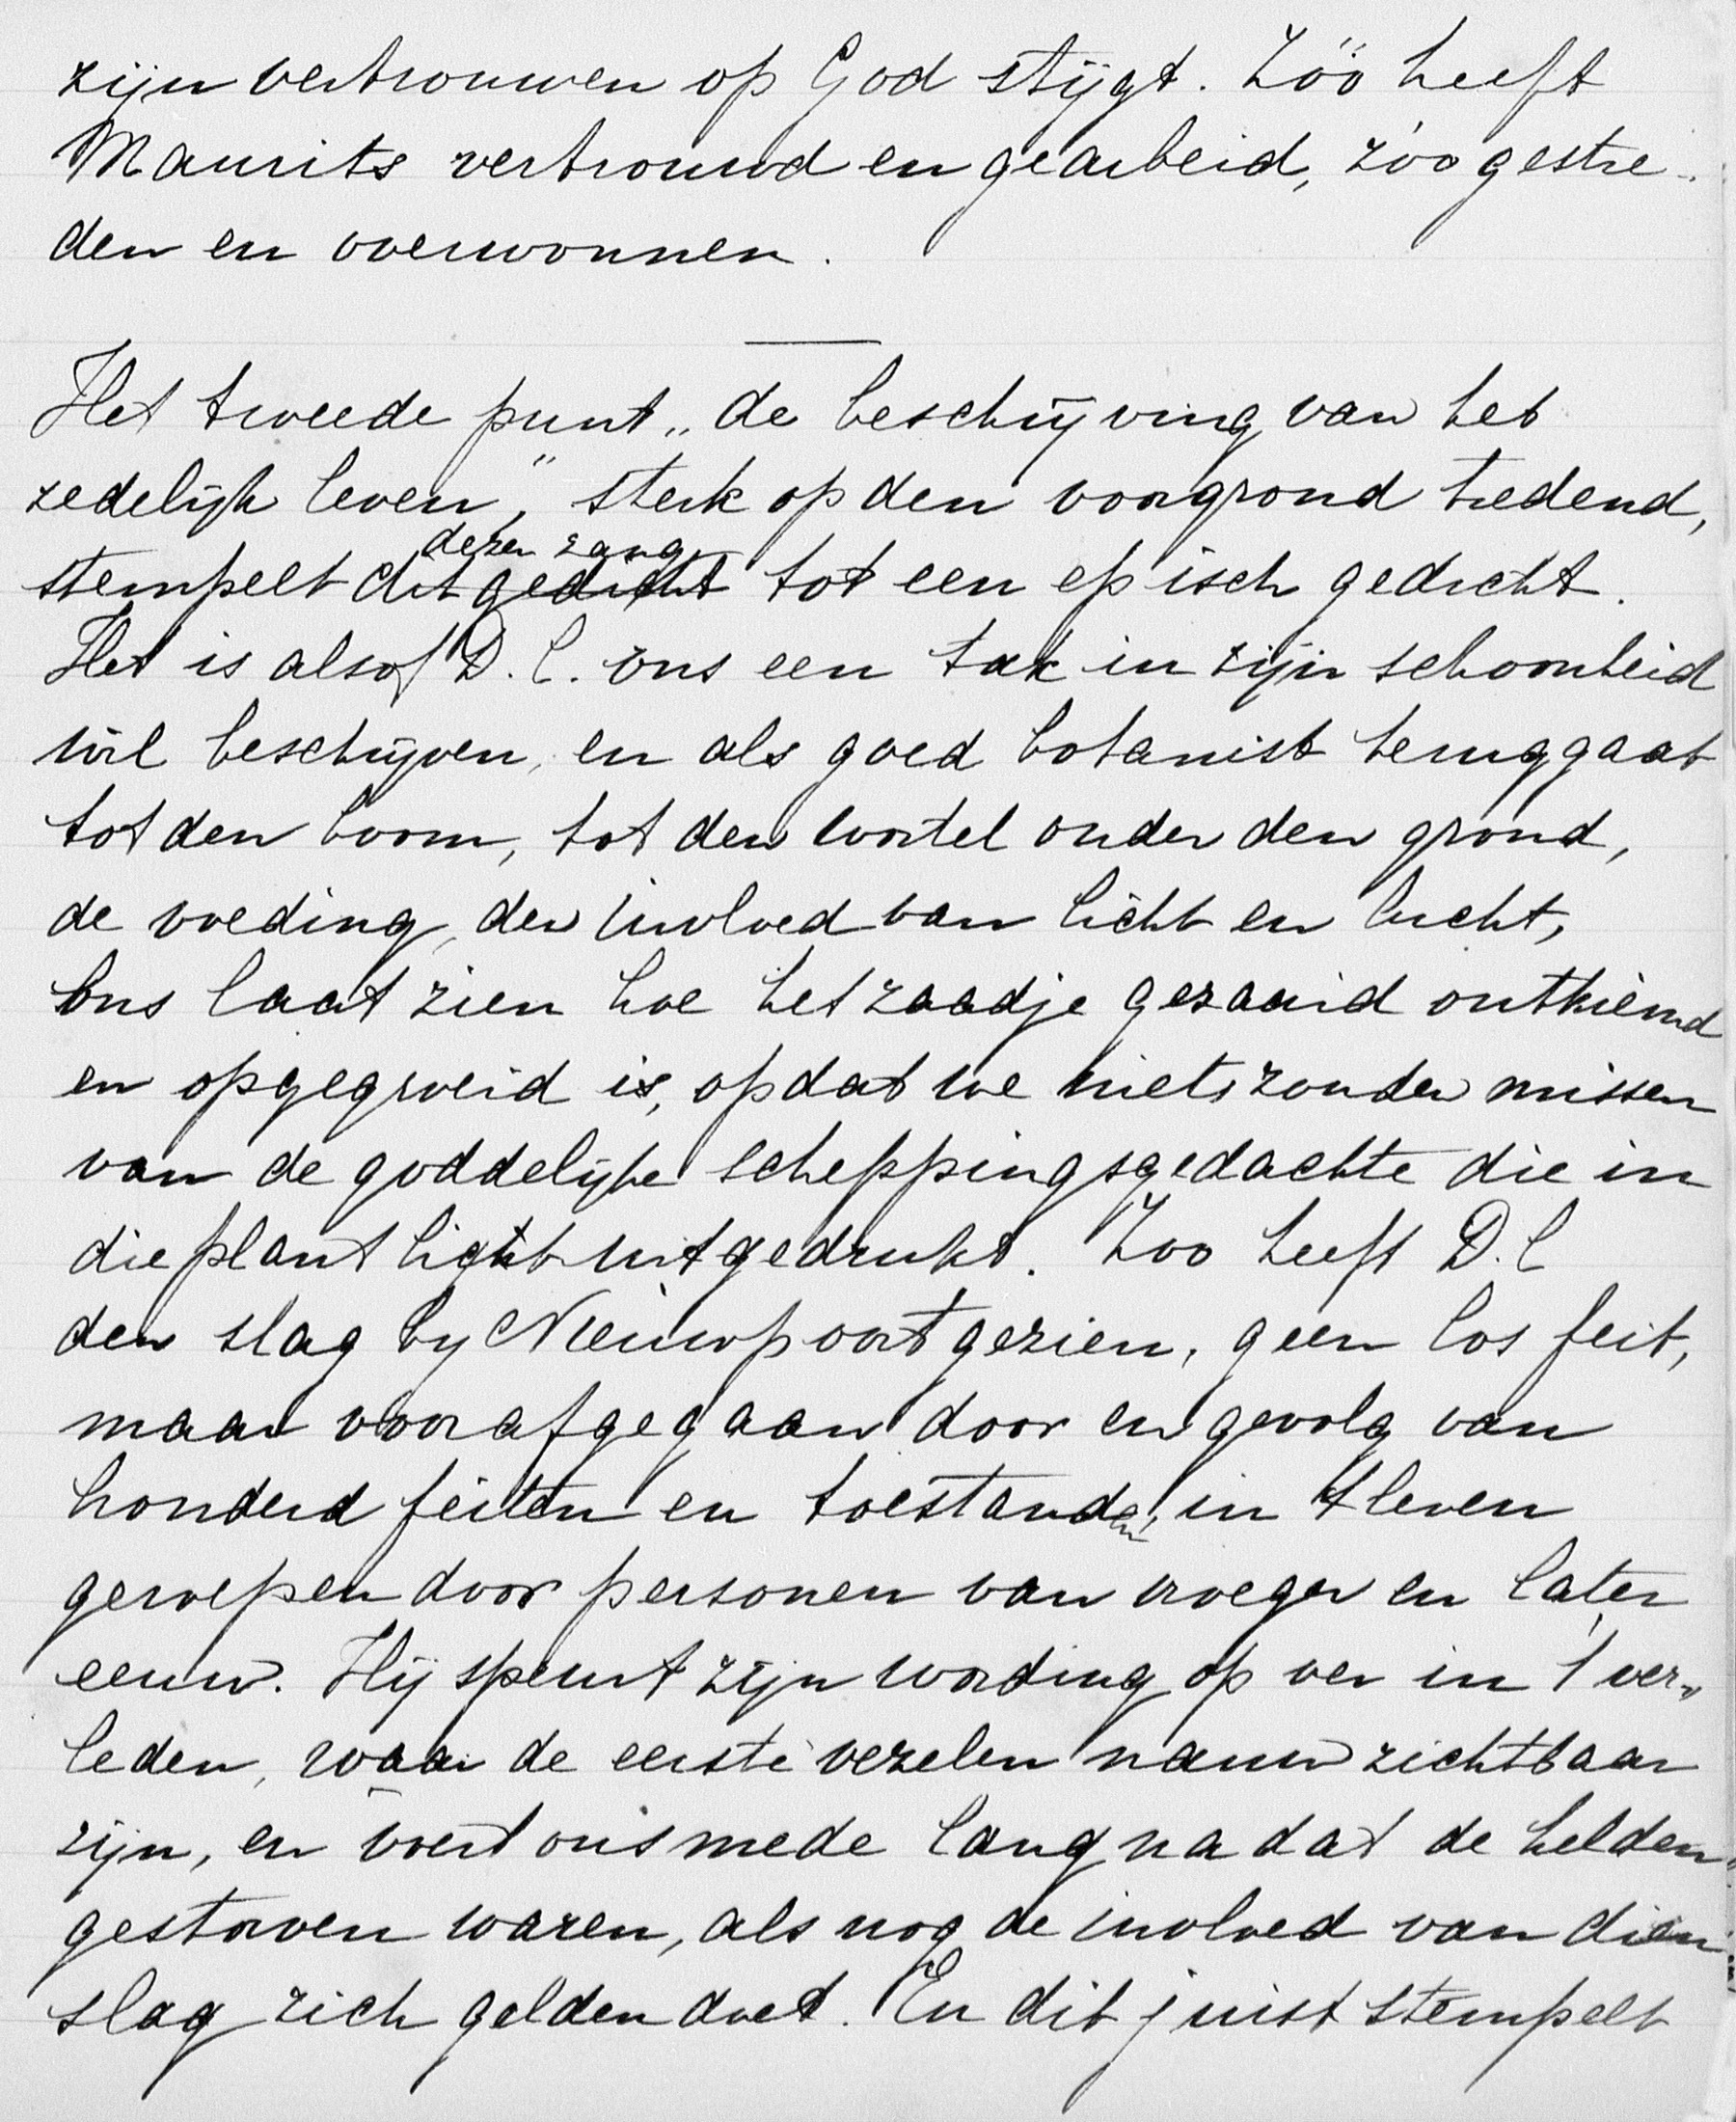 zijn vertrouwen op God stijgt. Zóó heeft
Maurits vertrouwd en gearbeid, zóo gestre-
den en overwonnen.
Het tweede punt „de beschrijving van het
zedelijk leven", sterk op den voorgrond tredend,
dezen zang
stempelt dit gedicht tot een episch gedicht.
Het is alsof D. C. ons een tak in zijn schoonheid
wil beschrijven, en als goed botanist teruggaat
tot den boom, tot den wortel onder den grond,
de voeding, den invloed van licht en lucht,
ons laat zien hoe het zaadje gezaaid ontkiemd
en opgegroeid is, opdat we niets zouden missen
van de goddelijke scheppingsgedachte die in
die plant ligt uitgedrukt. Zoo heeft D. C
den slag by Nieuwpoort gezien, geen los feit,
maar voorafgegaan door en gevolg van
honderd feiten en toestanden, in 't leven
geroepen door personen van vroeger en later
eeuw. Hij speurt zijn wording op ver in 't ver-
leden, waar de eerste vezelen nauw zichtbaar
zijn, en voert ons mede lang nadat de helden
gestorven waren, als nog de invloed van dien
slag zich gelden doet. En dit juist stempelt